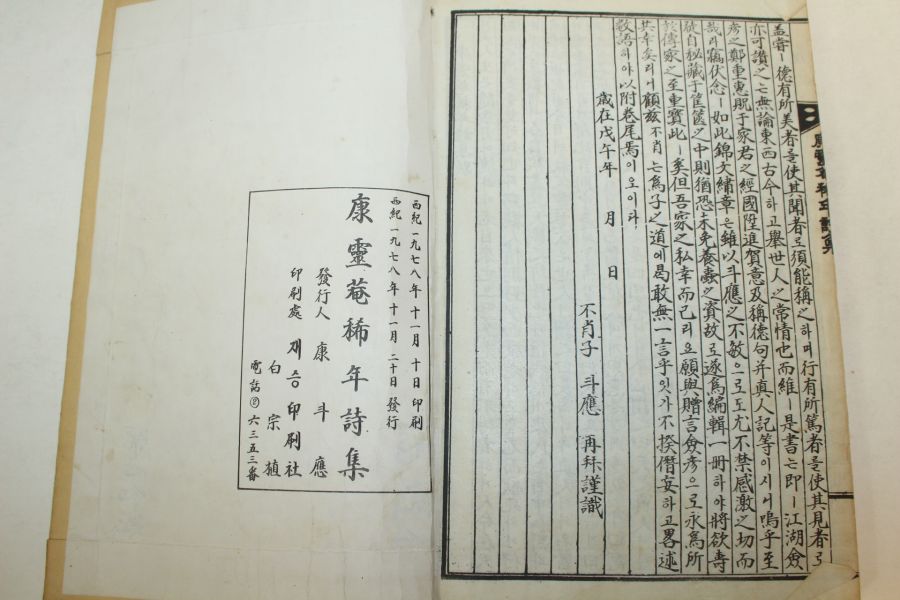 盖嘗ㅣ德有所美者를使其聞者로須能稱之하며行有所篤者를使其見者로
亦可讚之는無論東西古今하고擧世人之常情也而維ㅣ是書는即ㅣ江湖僉
彦之鄭重惠貺于家君之經國陞進賀意及稱德句并真人記等이시니嗚乎至
哉라竊伏念ㅣ如此錦文繡章은雖以斗應之不敏으로도尤不禁感激之切而
但自秘藏于篋篋之中則猶恐未免蠹之資故로遂爲編輯一册하야將欲壽
於傳家之至重寶此ㅣ奚但吾家之私幸而已리요願與贈言僉彦으로永爲所
共幸矣리니顧玆不肖는爲子之道에曷敢無一言乎잇가不揆僭妄하고畧述
數語하야以附卷尾焉이오이다
歲在戊午年 月 日
不肖子 斗應 再拜謹識
康靈菴稀年詩集
西紀一九七八年 十一月 十日 印刷
西紀一九七八年 十一月 二十日 發行
康靈菴稀年詩集
發行人 康斗應
印刷處 재승印刷社
白宗植
電話② 六三五三番